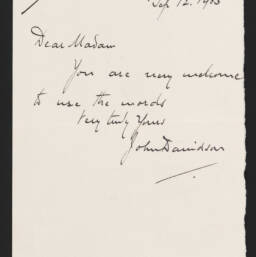 Sep 12. 1903
Dear Madam
You are very welcome
to use the words
Very truly Yours
John Davidson